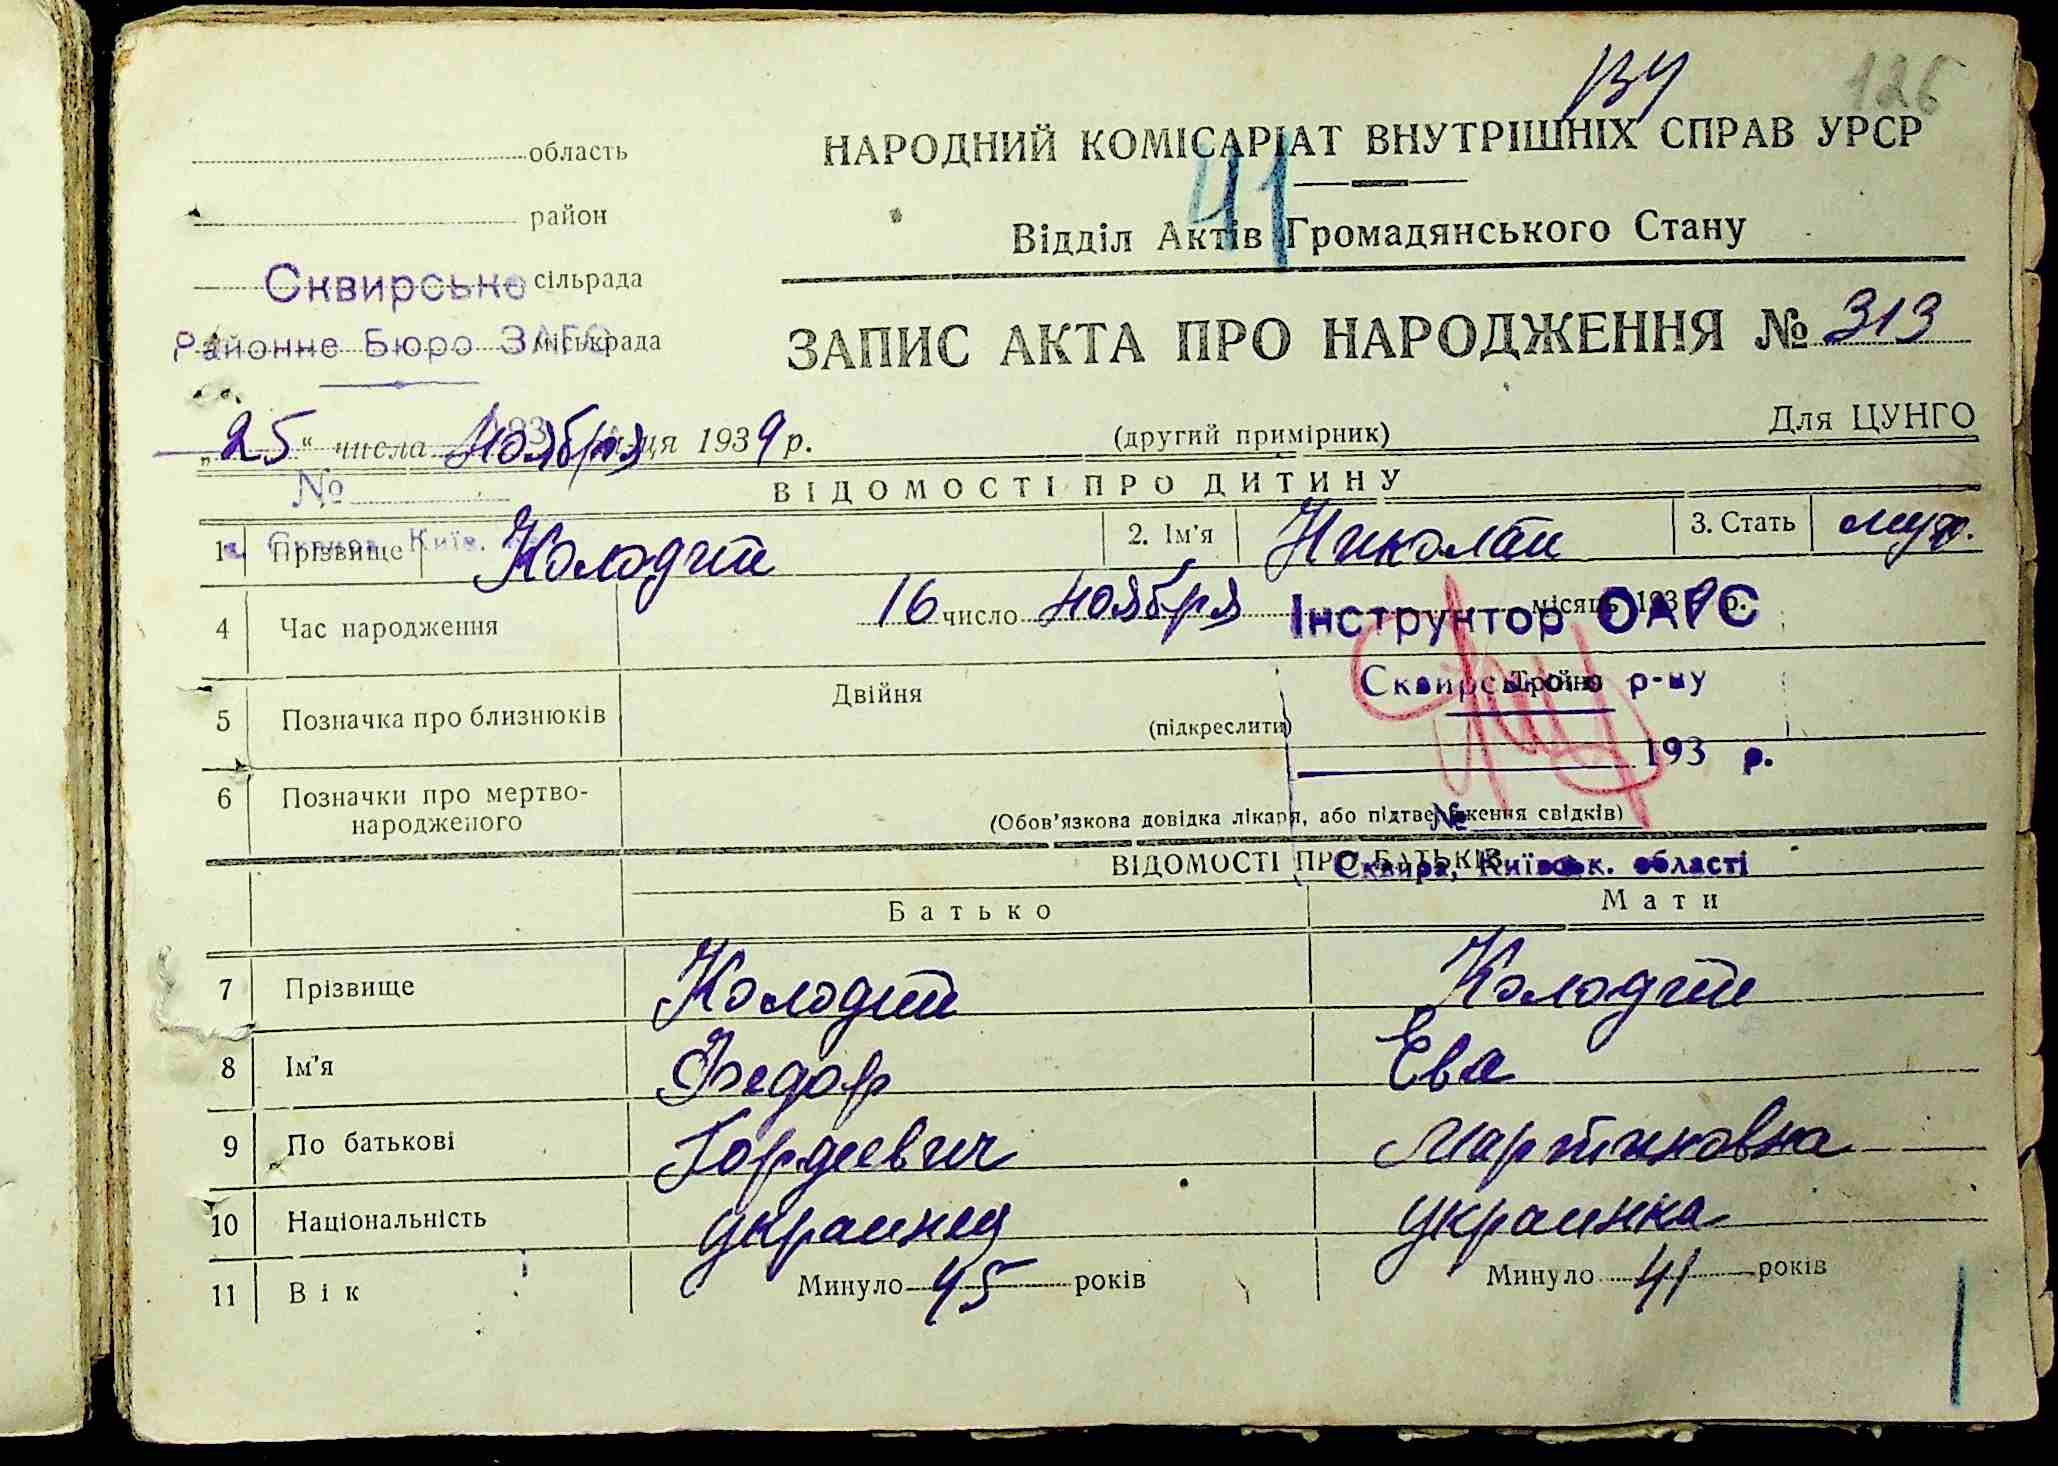 134
126
область
НАРОДНИЙ КОМІСАРІАТ ВНУТРІШНІХ СПРАВ УРСР
41
район
Відділ Актів Громадянського Стану
Сквирське сільрада
Районне Бюро ЗАГС міськрада
ЗАПИС АКТА ПРО НАРОДЖЕННЯ № 313
„25“ числа Ноября місяця 1939 р.
193
(другий примірник)
Для ЦУНГО
№
ВІДОМОСТІ ПРО ДИТИНУ
1 Прізвище Колодий 2. Ім'я Николай 3. Стать муж.
4 Час народження 16 число ноября місяць 1939 р.
Інструктор ОАГС
5 Позначка про близнюків Двійня (підкреслити) Тройня
Сквирського р-ну
193 р.
6 Позначки про мертво-
народженого
(Обов'язкова довідка лікаря, або підтвердження свідків)
№
ВІДОМОСТІ ПРО БАТЬКІВ
Сквира, Київськ. області
Батько Мати
7 Прізвище Колодий Колодий
8 Ім'я Федор Ева
9 По батькові Гордеевич Мартиновна
10 Національність украинец украинка
11 Вік Минуло 45 років Минуло 41 років